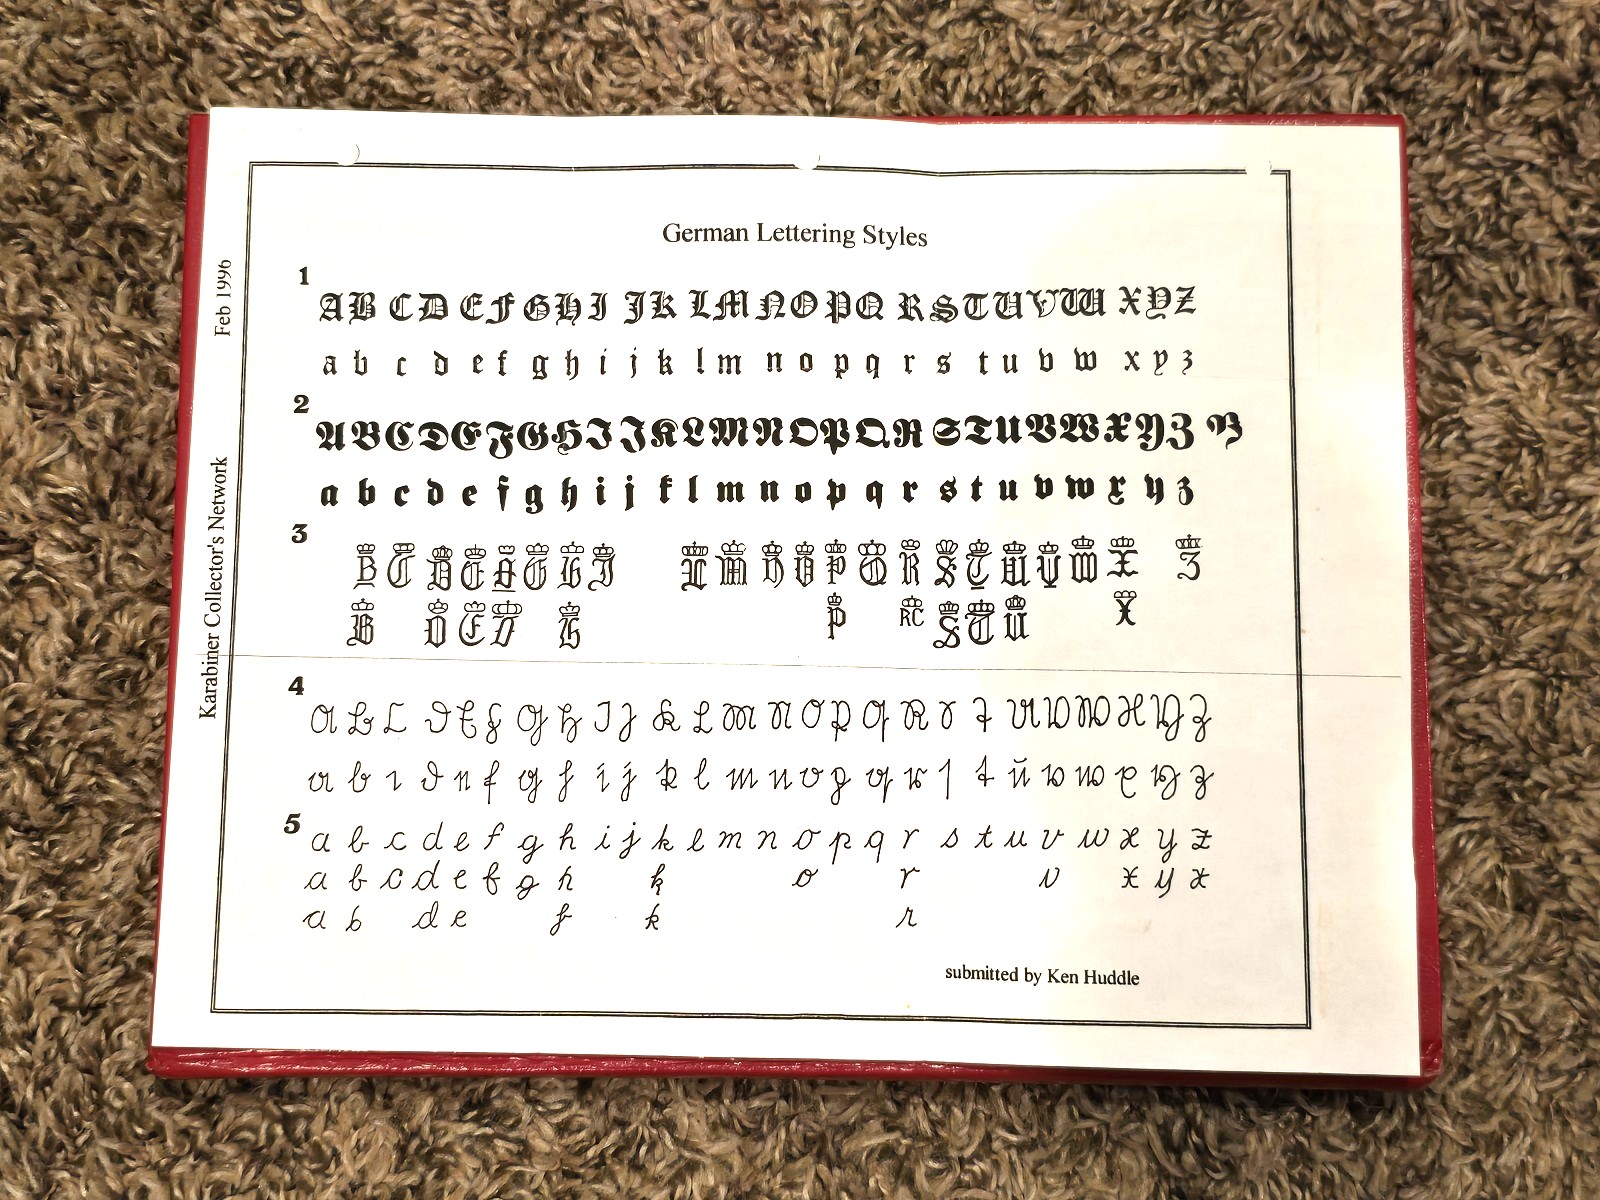 German Lettering Styles
1
A B C D E F G H I J K L M N O P Q R S T U V W X Y Z
a b c d e f g h i j k l m n o p q r s t u v w x y z
2
A B C D E F G H I J K L M N O P Q R S T U V W X Y Z
a b c d e f g h i j k l m n o p q r s t u v w x y z
3
B C D E F G H I L M N O P Q R S T U V W X Z
B D E F H P RC S T U X
4
A B C D E F G H I J K L M N O P Q R S T U V W X Y Z
a b c d e f g h i j k l m n o p q r s t u v w x y z
5
a b c d e f g h i j k l m n o p q r s t u v w x y z
a b c d e f g h k o r v x y z
a b d e h k r
submitted by Ken Huddle
Karabiner Collector's Network Feb 1996